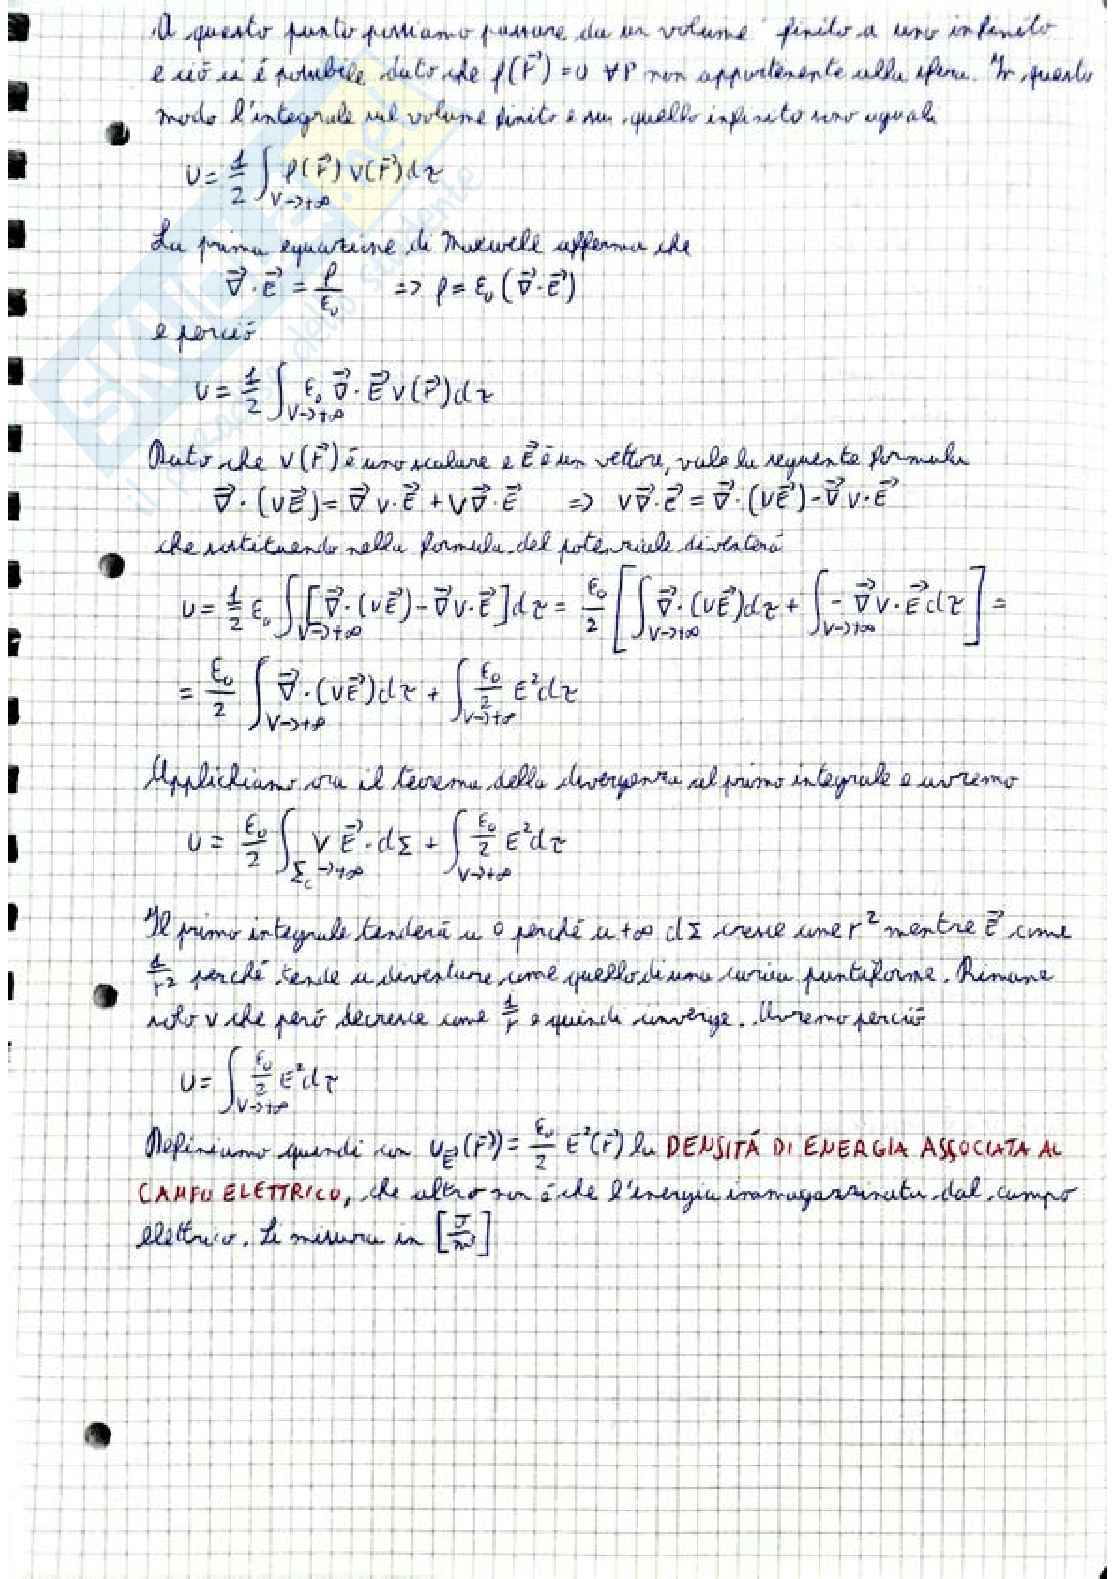 A questo punto possiamo passare da un volume finito a uno infinito
e ciò ci è possibile dato che ρ(r⃗)=0 ∀P non appartenente alla sfera. In questo
modo l'integrale sul volume finito e su quello infinito sono uguali
U = 1/2 ∫_{V→+∞} ρ(r⃗) V(r⃗) dτ
La prima equazione di Maxwell afferma che
∇⃗·E⃗ = ρ/ε₀ => ρ = ε₀ (∇⃗·E⃗)
e perciò
U = 1/2 ∫_{V→+∞} ε₀ ∇⃗·E⃗ V(r⃗) dτ
Dato che V(r⃗) è uno scalare e E⃗ è un vettore, vale la seguente formula
∇⃗·(VE⃗) = ∇⃗V·E⃗ + V∇⃗·E⃗ => V∇⃗·E⃗ = ∇⃗·(VE⃗) - ∇⃗V·E⃗
che sostituendo nella formula del potenziale diventerà
U = 1/2 ε₀ ∫_{V→+∞} [∇⃗·(VE⃗) - ∇⃗V·E⃗] dτ = ε₀/2 [∫_{V→+∞} ∇⃗·(VE⃗) dτ + ∫_{V→+∞} - ∇⃗V·E⃗ dτ] =
= ε₀/2 ∫_{V→+∞} ∇⃗·(VE⃗) dτ + ∫_{V→+∞} ε₀/2 E² dτ
Applichiamo ora il teorema della divergenza al primo integrale e avremo
U = ε₀/2 ∫_{Σ_c→+∞} V E⃗·dΣ + ∫_{V→+∞} ε₀/2 E² dτ
Il primo integrale tenderà a 0 perché a +∞ dΣ cresce come r² mentre E⃗ come
1/r² perché tende a diventare come quello di una carica puntiforme. Rimane
solo V che però decresce come 1/r e quindi converge. Avremo perciò
U = ∫_{V→+∞} ε₀/2 E² dτ
Definiamo quindi con U_E⃗(r⃗) = ε₀/2 E²(r⃗) la DENSITÁ DI ENERGIA ASSOCIATA AL
CAMPO ELETTRICO, che altro non è che l'energia immagazzinata dal campo
elettrico. Si misura in